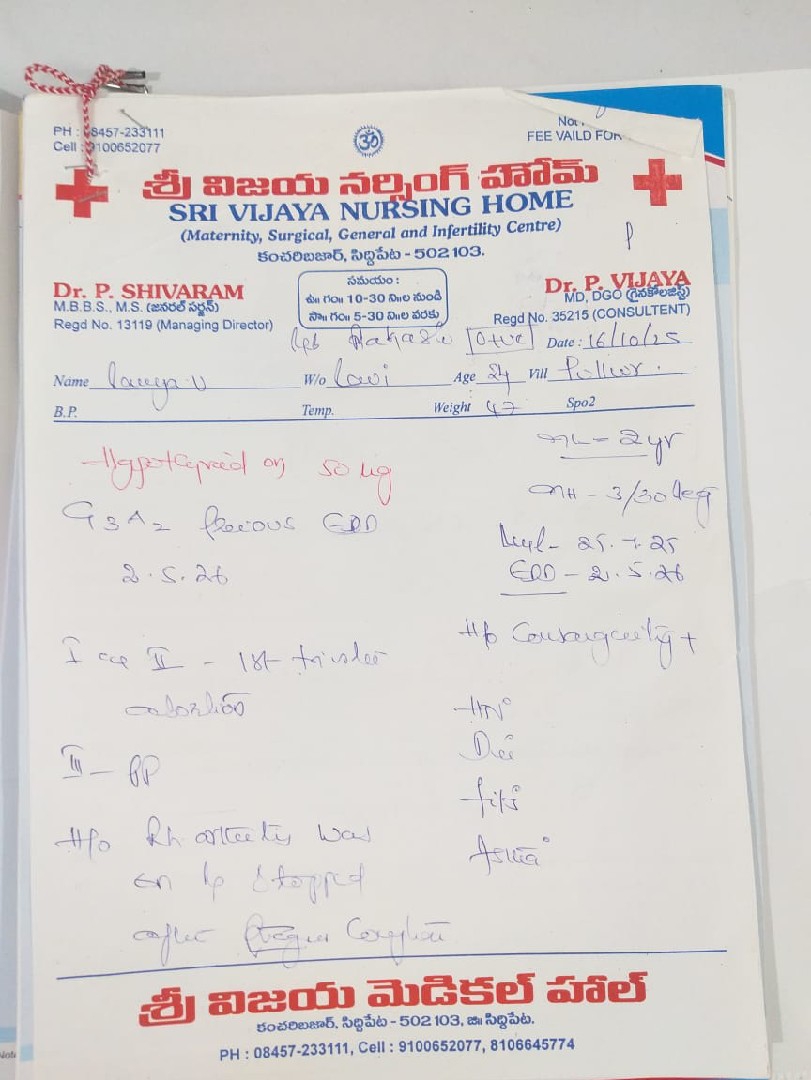 PH : 08457-233111
Cell : 9100652077
FEE VAILD FOR
ॐ
శ్రీ విజయ నర్సింగ్ హోమ్
SRI VIJAYA NURSING HOME
(Maternity, Surgical, General and Infertility Centre)
కంచరిబజార్, సిద్దిపేట - 502103.
Dr. P. SHIVARAM
M.B.B.S., M.S. (జనరల్ సర్జన్)
Regd No. 13119 (Managing Director)
సమయం :
ఉ॥ గం॥ 10-30 ని॥ల నుండి
సా॥ గం॥ 5-30 ని॥ల వరకు
Dr. P. VIJAYA
MD, DGO (గైనకోలజిస్ట్)
Regd No. 35215 (CONSULTENT)
O+ve Date : 16/10/25
Name W/o Age 24 Vill
B.P. Temp. Weight 47 Spo2
ML - 2 yr
Hypothyroid on 50 ug
MH - 3/30 deg
G3A2 Previous EDD
2.5.26
Lmp - 25.7.25
EDD - 2.5.26
H/o Consanguinity +
I II - 1st trimster
abortion
HTN°
III - PP
H/o Rh was
on stopped
after
శ్రీ విజయ మెడికల్ హాల్
కంచరిబజార్, సిద్దిపేట - 502 103, జి॥ సిద్దిపేట.
PH : 08457-233111, Cell : 9100652077, 8106645774